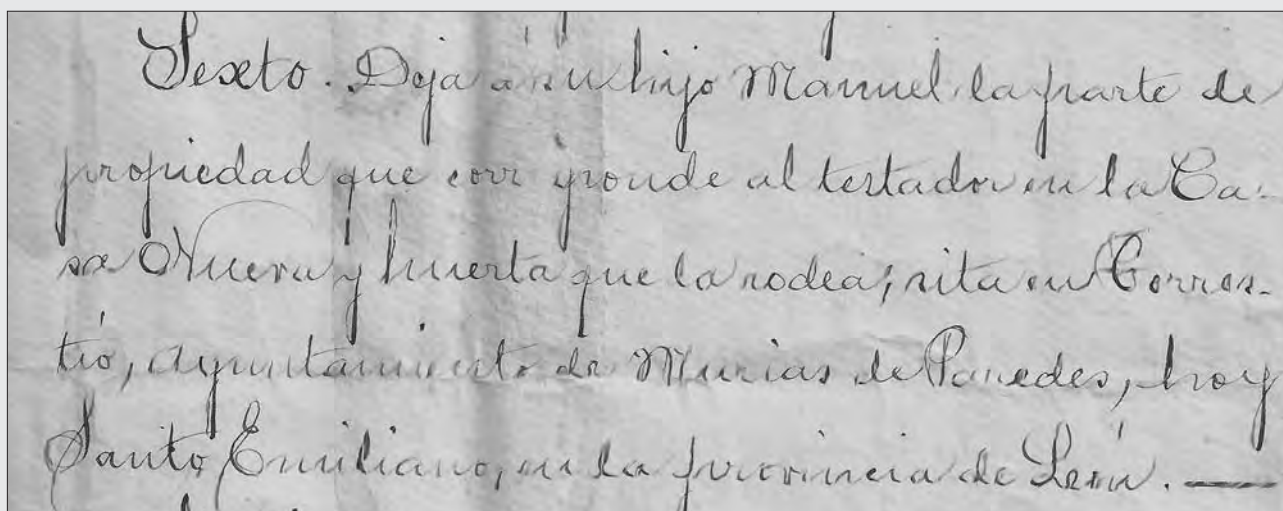 Sexto. Deja á su hijo Manuel la parte de
propiedad que corresponde al testador en la Ca-
sa Nueva y huerta que la rodea, sita en Torres-
tío, Ayuntamiento de Murias de Paredes, hoy
Santo Emiliano, en la provincia de León. —